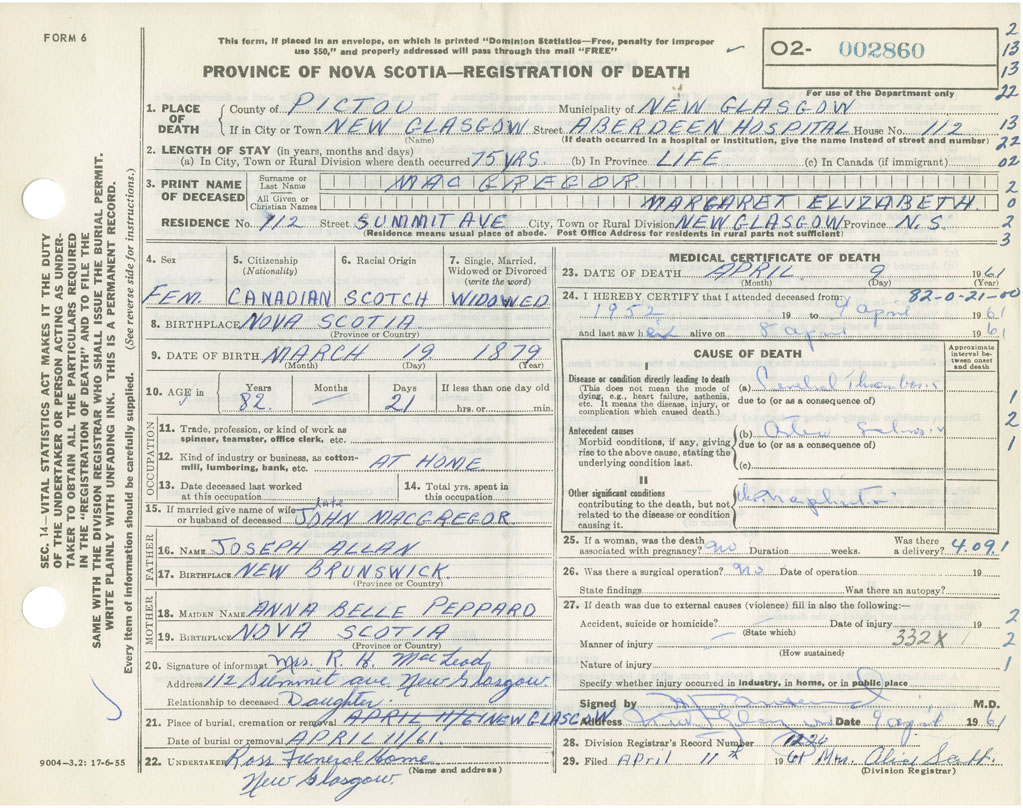 FORM 6
This form, if placed in an envelope, on which is printed "Dominion Statistics—Free, penalty for improper
use $50," and properly addressed will pass through the mail "FREE"
02- 002860
For use of the Department only
PROVINCE OF NOVA SCOTIA—REGISTRATION OF DEATH
1. PLACE OF DEATH County of PICTOU Municipality of NEW GLASGOW
If in City or Town NEW GLASGOW Street ABERDEEN HOSPITAL House No. 112
(Name) (If death occurred in a hospital or institution, give the name instead of street and number)
2. LENGTH OF STAY (in years, months and days)
(a) In City, Town or Rural Division where death occurred 75 YRS. (b) In Province LIFE (c) In Canada (if immigrant)
3. PRINT NAME OF DECEASED Surname or Last Name MACGREGOR
All Given or Christian Names MARGARET ELIZABETH
RESIDENCE No. 112 Street SUMMIT AVE City, Town or Rural Division NEW GLASGOW Province N.S.
(Residence means usual place of abode. Post Office Address for residents in rural parts not sufficient)
4. Sex FEM.
5. Citizenship (Nationality) CANADIAN
6. Racial Origin SCOTCH
7. Single, Married, Widowed or Divorced (write the word) WIDOWED
8. BIRTHPLACE NOVA SCOTIA
(Province or Country)
9. DATE OF BIRTH MARCH 19 1879
(Month) (Day) (Year)
10. AGE in Years 82. Months — Days 21 If less than one day old hrs. or min.
OCCUPATION
11. Trade, profession, or kind of work as
spinner, teamster, office clerk, etc.
12. Kind of industry or business, as cotton-
mill, lumbering, bank, etc. AT HOME
13. Date deceased last worked
at this occupation
14. Total yrs. spent in
this occupation
15. If married give name of wife
or husband of deceased late JOHN MACGREGOR
FATHER
16. NAME JOSEPH ALLAN
17. BIRTHPLACE NEW BRUNSWICK.
(Province or Country)
MOTHER
18. MAIDEN NAME ANNA BELLE PEPPARD
19. BIRTHPLACE NOVA SCOTIA
(Province or Country)
20. Signature of informant Mrs. R. H. MacLeod
Address 112 Summit ave. New Glasgow.
Relationship to deceased Daughter
21. Place of burial, cremation or removal APRIL 11/61 NEW GLASGOW
Date of burial or removal APRIL 11/61.
22. UNDERTAKER Ross Funeral Home
(Name and address)
New Glasgow.
MEDICAL CERTIFICATE OF DEATH
23. DATE OF DEATH APRIL 9 1961
(Month) (Day) (Year)
24. I HEREBY CERTIFY that I attended deceased from: 82-0-21-00
1952 19 to 9 April 1961
and last saw her alive on 8 April 1961
CAUSE OF DEATH
Approximate interval between onset and death
I
Disease or condition directly leading to death
(This does not mean the mode of
dying, e.g., heart failure, asthenia,
etc. It means the disease, injury, or
complication which caused death.)
(a) Cerebral Thrombosis
due to (or as a consequence of)
Antecedent causes
Morbid conditions, if any, giving
rise to the above cause, stating the
underlying condition last.
(b)
due to (or as a consequence of)
(c)
II
Other significant conditions
contributing to the death, but not
related to the disease or condition
causing it.
25. If a woman, was the death
associated with pregnancy? no Duration weeks. Was there
a delivery? 4.091
26. Was there a surgical operation? no Date of operation 19
State findings Was there an autopsy?
27. If death was due to external causes (violence) fill in also the following:—
Accident, suicide or homicide? Date of injury 19
(State which)
Manner of injury 332X
(How sustained)
Nature of injury
Specify whether injury occurred in industry, in home, or in public place
Signed by M.D.
Address Date 9 April 1961
28. Division Registrar's Record Number
29. Filed April 11th 1961 Mrs. Alice Scott.
(Division Registrar)
2
13
13
22
13
22
02
2
0
3
1
2
1
1
2
2
1
SEC. 14—VITAL STATISTICS ACT MAKES IT THE DUTY
OF THE UNDERTAKER OR PERSON ACTING AS UNDER-
TAKER TO OBTAIN ALL THE PARTICULARS REQUIRED
IN THE "REGISTRATION OF DEATH" AND TO FILE THE
SAME WITH THE DIVISION REGISTRAR WHO SHALL ISSUE THE BURIAL PERMIT.
WRITE PLAINLY WITH UNFADING INK. THIS IS A PERMANENT RECORD.
Every item of information should be carefully supplied. (See reverse side for instructions.)
9004—3.2: 17-6-55